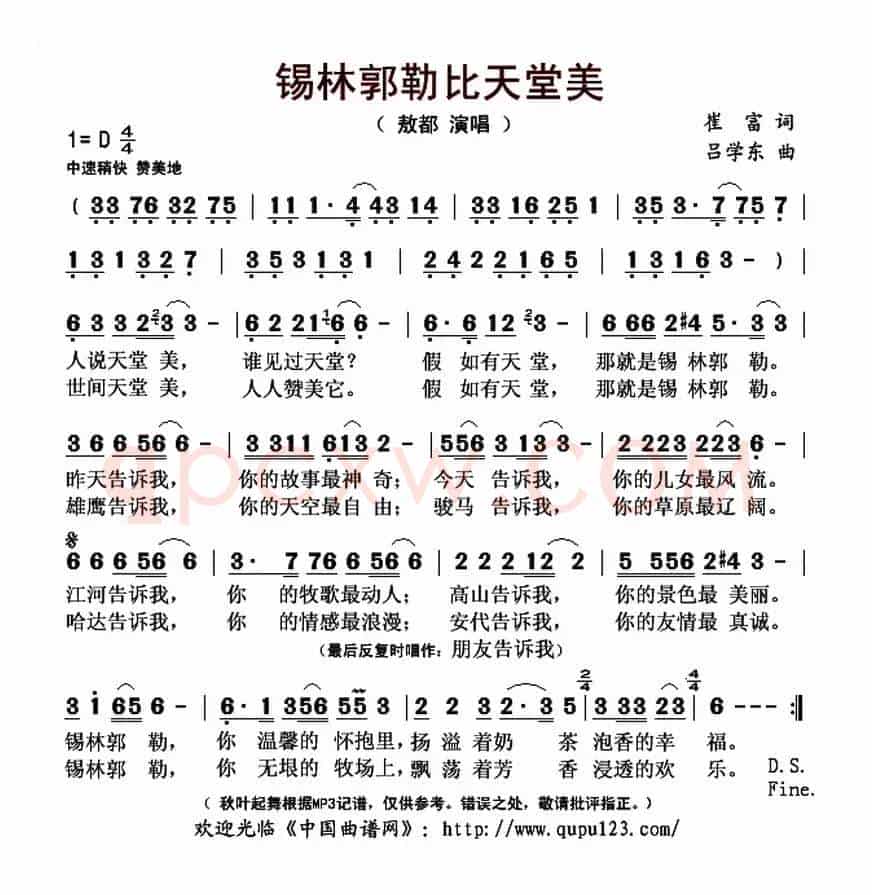 锡林郭勒比天堂美
（ 敖都 演唱 ）
1= D 4/4
崔 富 词
中速稍快 赞美地
吕学东 曲
（ 33 76 32 75 | 11 1· 4 43 14 | 33 16 25 1 | 35 3· 7 75 7 |
1 3 1 3 2 7 | 3 5 3 1 3 1 | 2 4 2 2 1 6 5 | 1 3 1 6 3 - ) |
6 3 3 2 2 3 3 - | 6 2 2 1 1 6 6 - | 6· 6 12 2 3 - | 6 66 2 #4 5· 3 3 |
人说天堂 美， 谁见过天堂？ 假 如有天 堂， 那就是锡 林郭 勒。
世间天堂 美， 人人赞美它。 假 如有天 堂， 那就是锡 林郭 勒。
3 6 6 56 6 - | 3 3 11 6 13 2 - | 556 3 13 3 - | 2 223 223 6 - |
昨天告诉我， 你的故事最神 奇；今天 告诉我， 你的儿女最风 流。
雄鹰告诉我， 你的天空最自 由；骏马 告诉我， 你的草原最辽 阔。
6 6 6 56 6 - | 3· 7 76 6 56 6 - | 2 2 2 12 2 - | 5 556 2 #4 3 - |
江河告诉我， 你 的牧歌最动人；高山告诉我， 你的景色最 美丽。
哈达告诉我， 你 的情感最浪漫；安代告诉我， 你的友情最 真诚。
（最后反复时唱作：朋友告诉我）
2/4 4/4
3 1 65 6 - | 6· 1 356 55 3 | 2 2 3 2·3 5 | 3 33 23 | 6 - - - :||
锡林郭 勒， 你 温馨的 怀抱里，扬 溢 着奶 茶 泡香的幸 福。
锡林郭 勒， 你 无垠的 牧场上，飘 荡 着芳 香 浸透的欢 乐。
D.S.
Fine.
（ 秋叶起舞根据MP3记谱，仅供参考。错误之处，敬请批评指正。）
欢迎光临《中国曲谱网》：http://www.qupu123.com/
qpcxw.com